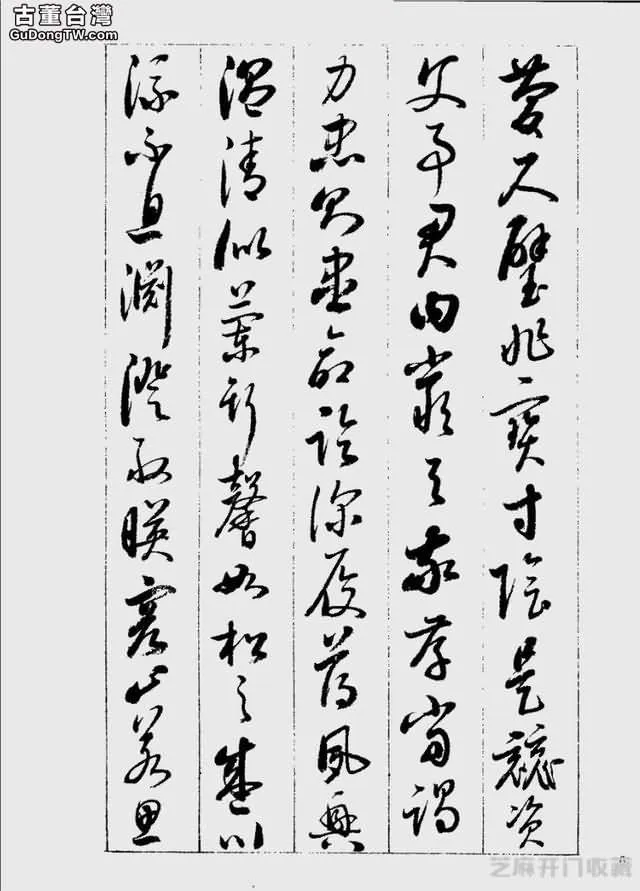 古董台灣
GuDongTW.com
慶尺璧非寶寸陰是競資
父事君曰嚴與敬孝當竭
力忠則盡命臨深履薄夙興
溫清似蘭斯馨如松之盛川
流不息淵澄取映容止若思
芝麻开门收藏